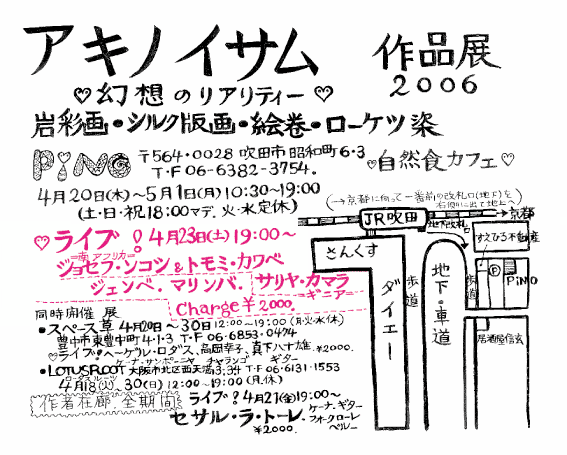 アキノイサム 作品展
2006
♡幻想のリアリティー♡
岩彩画・シルク版画・絵巻・ローケツ染
PiNO 〒564・0028 吹田市昭和町6・3
T・F 06-6382-3754. ♡自然食カフェ♡
4月20日(木)〜5月1日(月)10:30〜19:00
(土・日・祝18:00マデ.火・水定休)
♡ライブ! 4月23日(土)19:00〜
南アフリカ
ジョセフ・ンコシ&トモミ・カワベ
ジェンベ.マリンバ. サリヤ・カマラ
ギニアー
Charge¥2000.
同時開催 展
•スペース草 4月20日〜30日 12:00〜19:00(月・火・水休)
豊中市東豊中町4・1・3 T・F 06・6853・0474
♡ライブ!ヘーゲル・ロダス、高岡幸子、真下八十雄.¥2000.
ケーナ・サンポーニャ チャランゴ ギター
•LOTUSROOT 大阪市北区西天満3,34 T・F 06・6131・1553
ロータスルーツ
4月18(火)〜30(日) 12:00〜19:00(月.休)
作者在廊.全期間
ライブ! 4月21(金)19:00〜
セサル・ラ・トーレ.
ケーナ.ギター
フォークローレ
ペルー
¥2000.
(→京都に向って一番前の改札口(地下)を
右側に出て地上へ)
JR吹田
→京都
地下改札
さんくす
すえひろ不動産
ダイエー
歩道
地下・車道
歩道
P
PiNO
居酒屋信玄